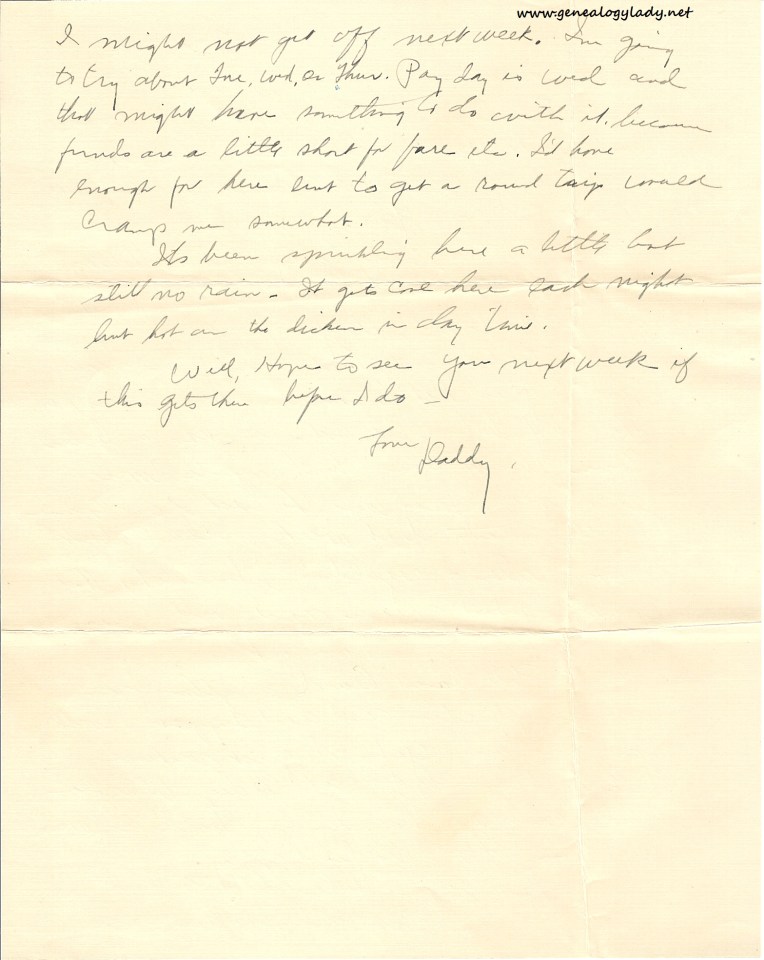 www.genealogylady.net
I might not get off next week. I'm going
to try about Tue, Wed, or Thur. Pay day is Wed and
that might have something to do with it, because
funds are a little short for fare etc. I'd have
enough for here but to get a round trip would
cramp me somewhat.
Its been sprinkling here a little but
still no rain. It gets cool here each night
but hot as the dicken in day time.
Well, Hope to see you next week if
this gets there before I do –
Love Daddy.